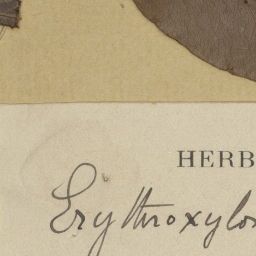 HERB
Erythroxylon